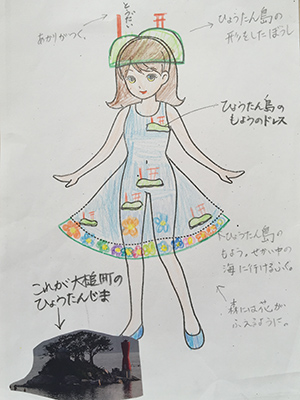 とうだい
あかりがつく。
ひょうたん島の
形をしたぼうし
ひょうたん島の
もようのドレス
ひょうたん島の
もよう。せかい中の
海に行けるふく。
森には花が
ふえるように。
これが大槌町の
ひょうたんじま